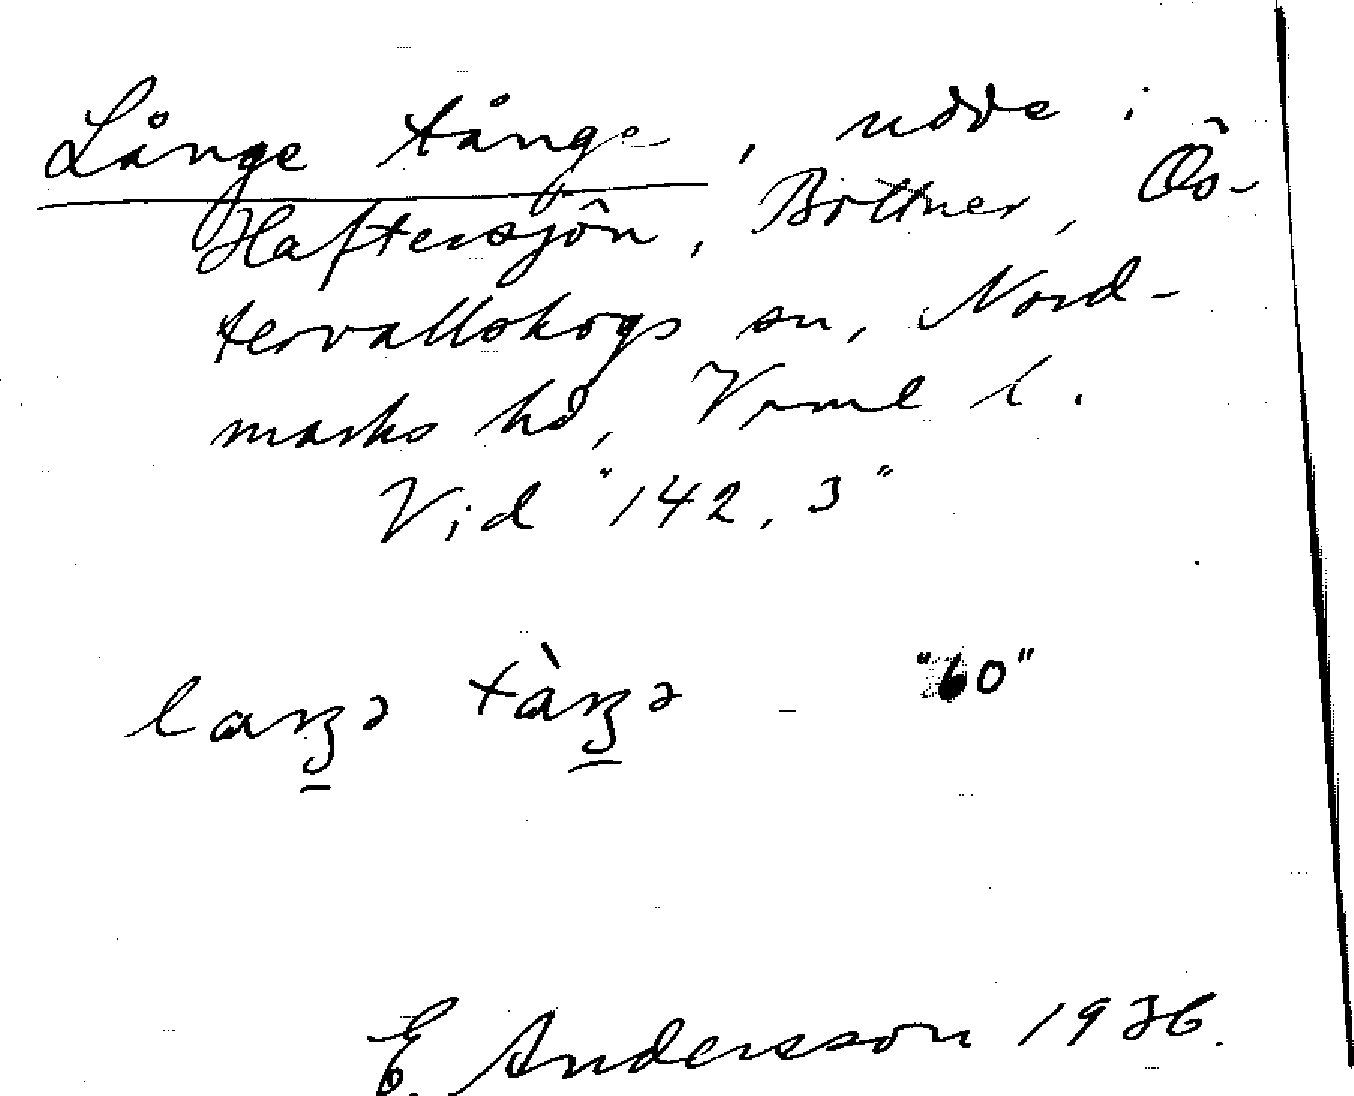 Långe tånge, udde i
Haftersjön, Bottner, Ös-
tervallskogs sn, Nord-
marks hd, Vrml l.
Vid "142,3"
laŋə tàŋə - "60"
E. Andersson 1936.